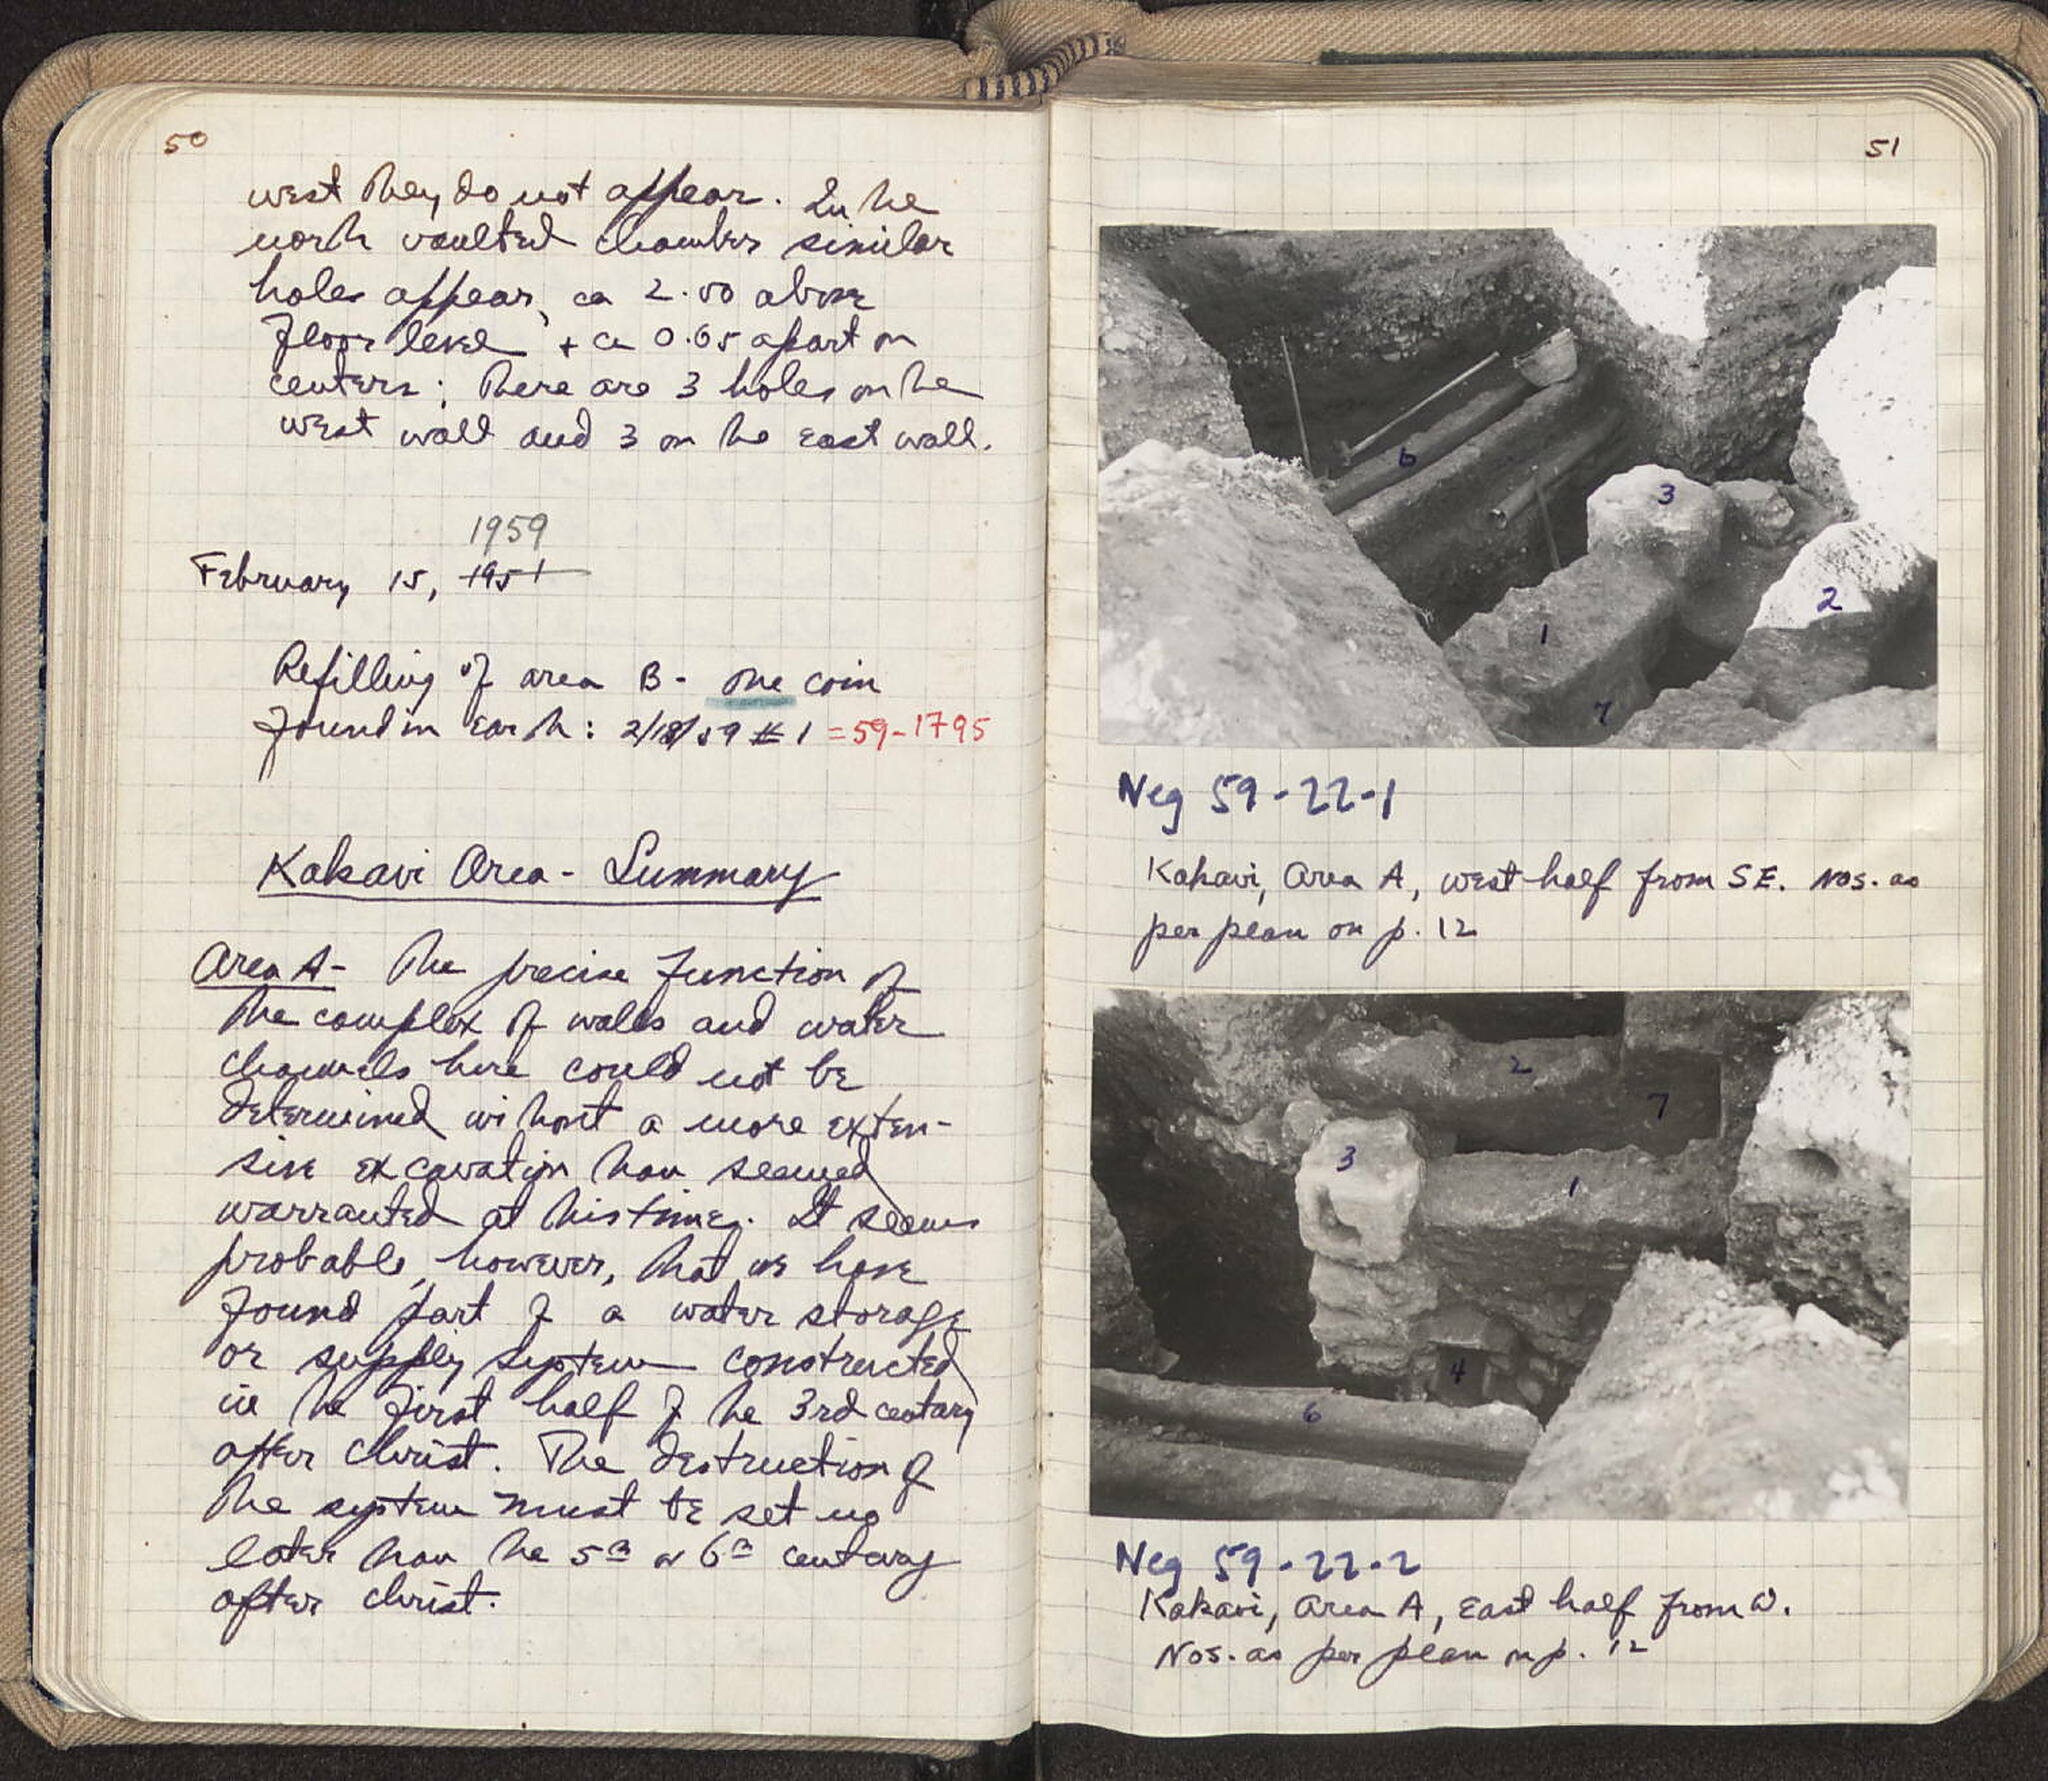 50
west they do not appear. In the
north vaulted chamber similar
holes appear, ca 2.00 above
floor level + ca 0.65 apart on
centers; there are 3 holes on the
west wall and 3 on the east wall.
1959
February 15, 1951
Refilling of area B - one coin
found in earth: 2/18/59 # 1 = 59-1795
Kakavi Area - Summary
Area A - The precise function of
the complex of walls and water
channels here could not be
determined without a more exten-
sive excavation than seemed
warranted at this time. It seems
probable, however, that we have
found part of a water storage
or supply system constructed
in the first half of the 3rd century
after Christ. The destruction of
the system must be set no
later than the 5th or 6th century
after Christ.
51
6
3
2
1
7
Neg 59-22-1
Kakavi, Area A, west half from SE. Nos. as
per plan on p. 12
2
7
3
1
4
6
Neg 59-22-2
Kakavi, Area A, East half from W.
Nos. as per plan on p. 12